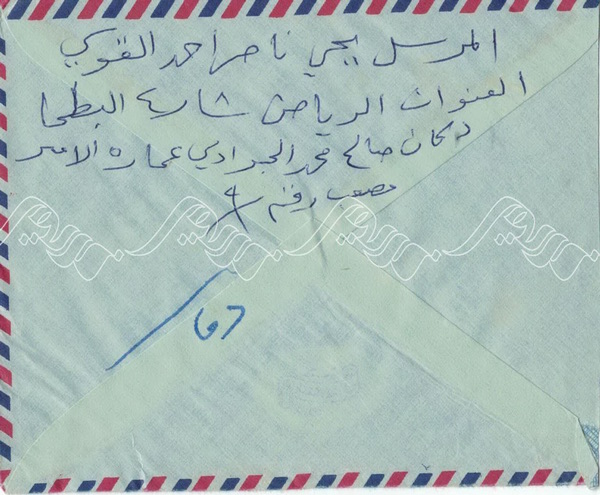 المرسل يحي ناصر احمد القوسي
العنوان الرياض شارع البطحا
دكان صالح محمد الجرادي عمارة الامير
مصعب رقم